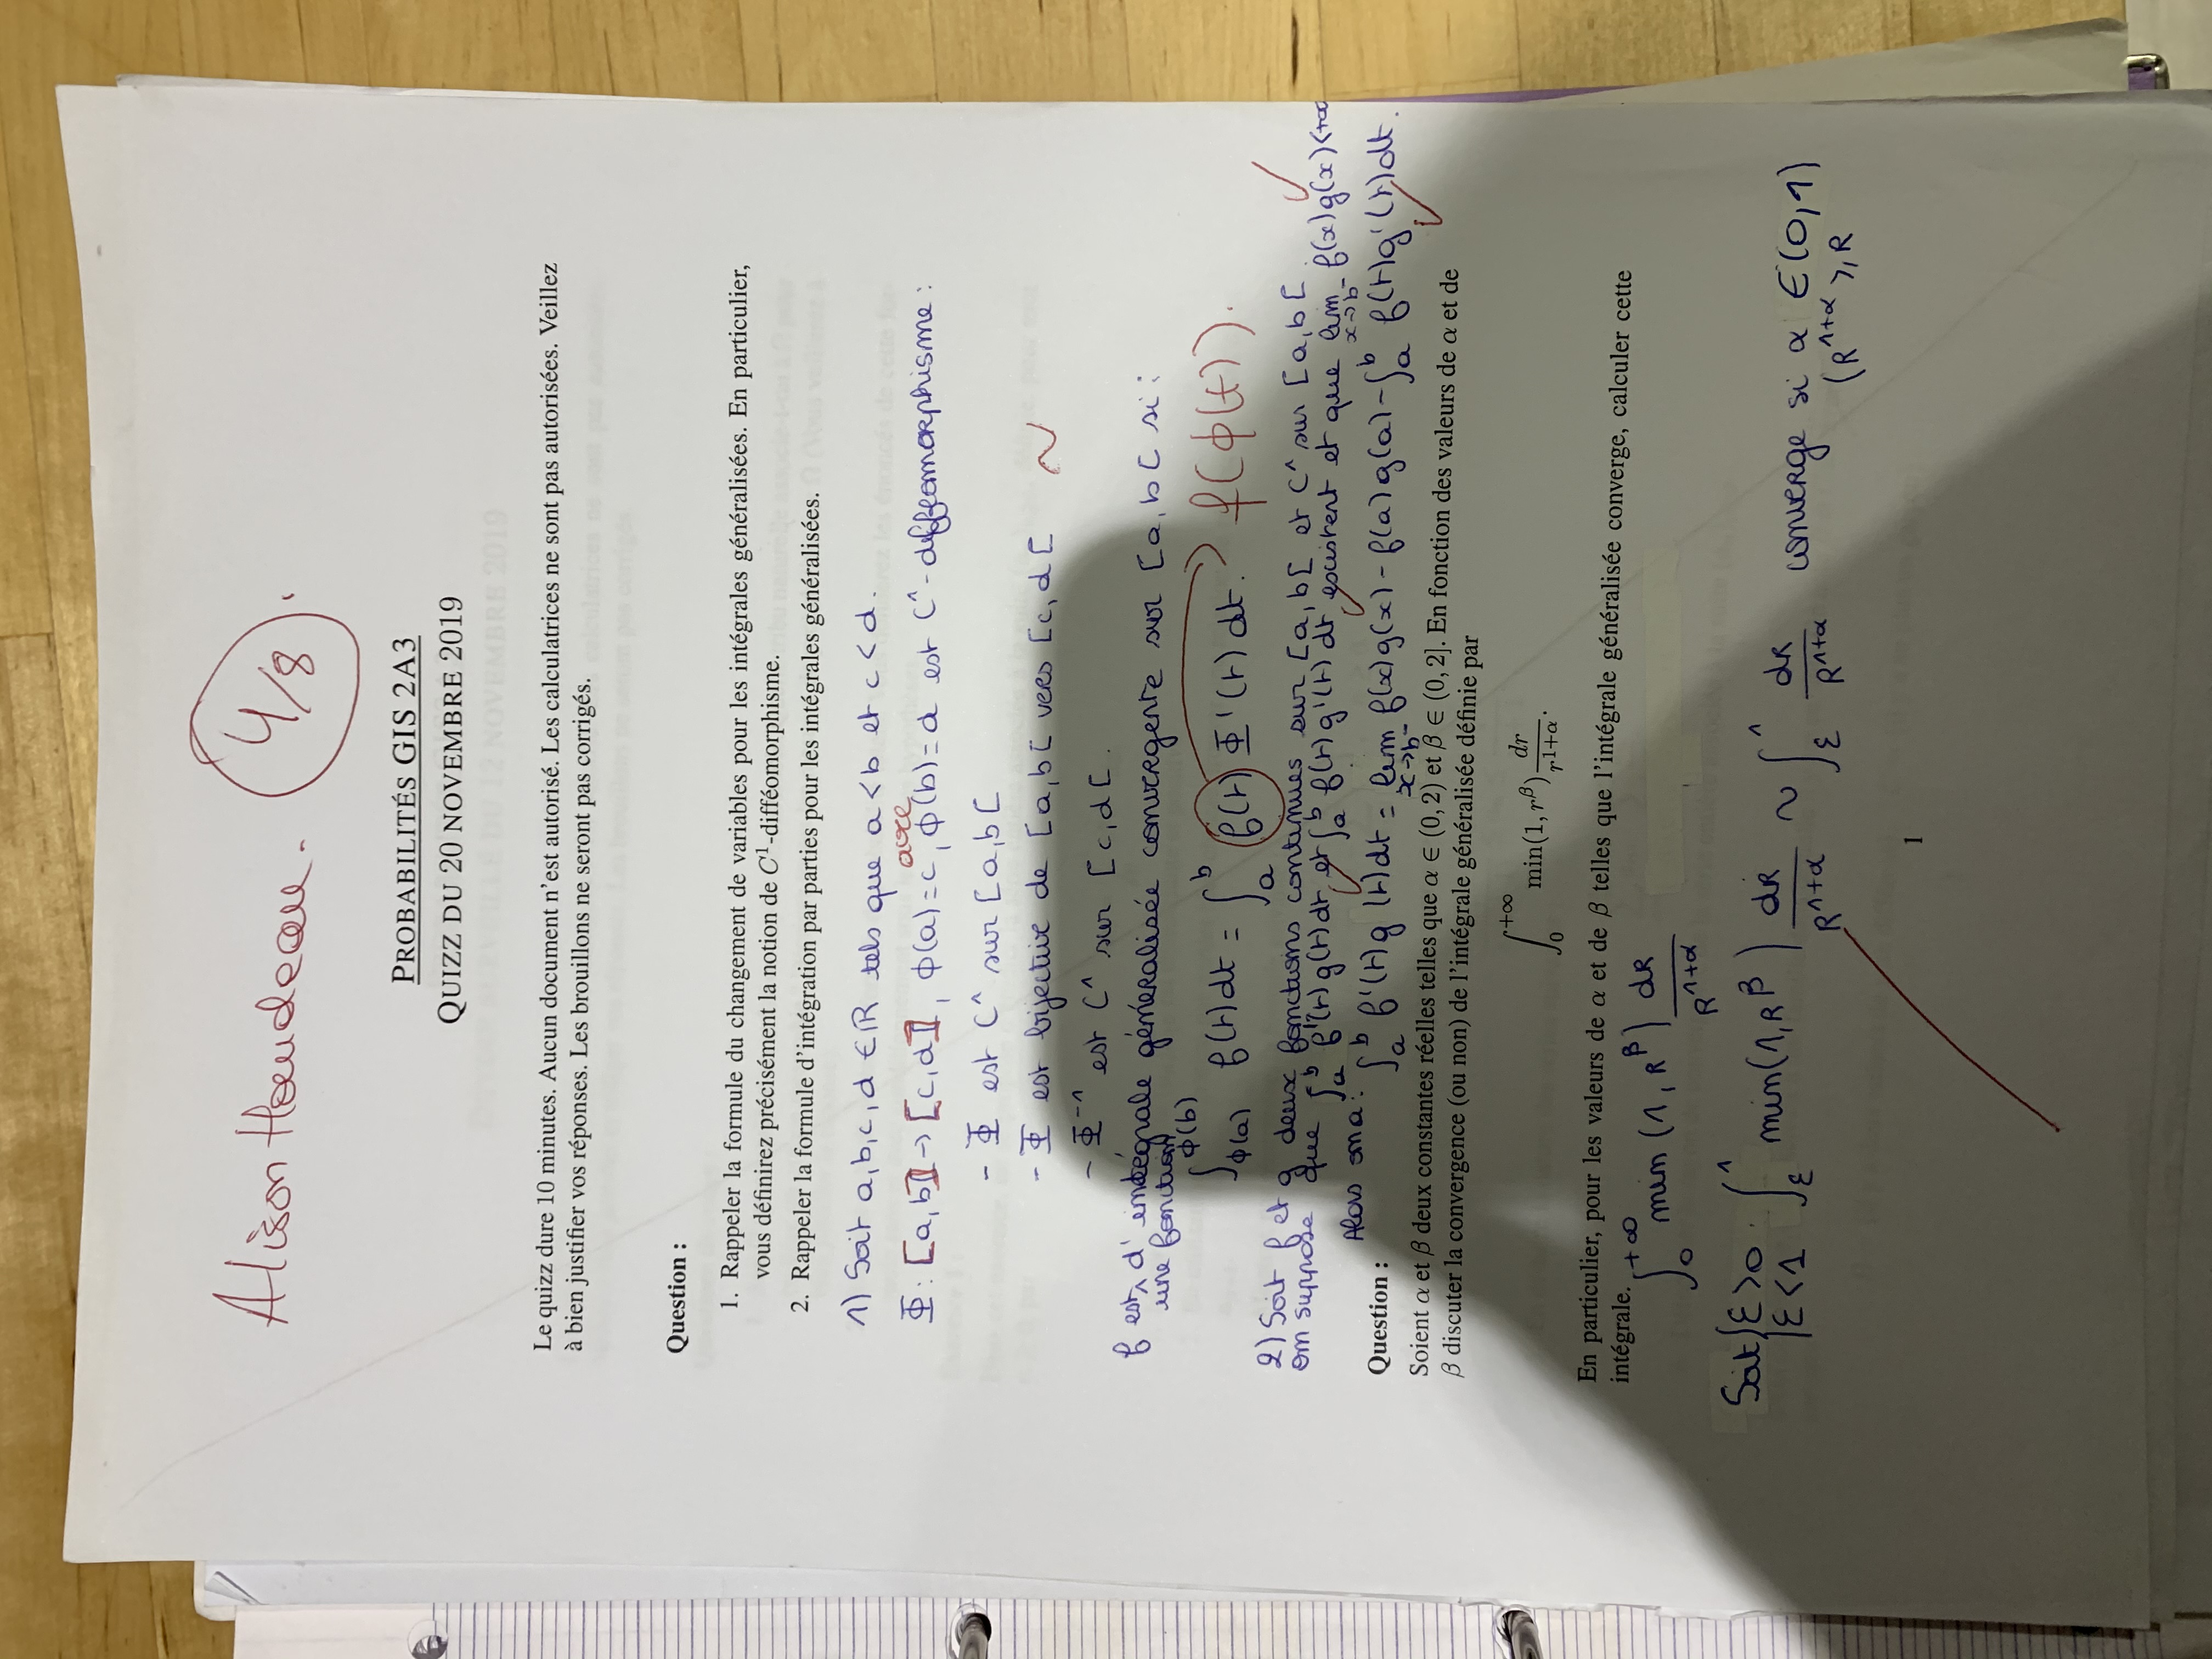 Alison Houdeau. 4/8.
PROBABILITÉS GIS 2A3
QUIZZ DU 20 NOVEMBRE 2019
Le quizz dure 10 minutes. Aucun document n'est autorisé. Les calculatrices ne sont pas autorisées. Veillez
à bien justifier vos réponses. Les brouillons ne seront pas corrigés.
Question :
1. Rappeler la formule du changement de variables pour les intégrales généralisées. En particulier,
vous définirez précisément la notion de C¹-difféomorphisme.
2. Rappeler la formule d'intégration par parties pour les intégrales généralisées.
1) Soit a,b,c,d ∈ ℝ tels que a < b et c < d.
avec
Φ : [a,b[ → [c,d[, ϕ(a)=c, ϕ(b)=d est C¹-difféomorphisme :
- Φ est C¹ sur [a,b[
- Φ est bijective de [a,b[ vers [c,d[ ~
- Φ⁻¹ est C¹ sur [c,d[.
f est d'intégrale généralisée convergente sur [a,b[ si :
une fonction
∫_{ϕ(a)}^{ϕ(b)} f(t)dt = ∫_a^b f(t) Φ'(t) dt. f(ϕ(t)).
2) Soit f et g deux fonctions continues sur [a,b[ et C¹ sur [a,b[.
on suppose que ∫_a^b f'(t)g(t)dt et ∫_a^b f(t)g'(t)dt existent et que lim_{x→b⁻} f(x)g(x)<+∞
Alors on a : ∫_a^b f'(t)g(t)dt = lim_{x→b⁻} f(x)g(x) - f(a)g(a) - ∫_a^b f(t)g'(t)dt.
Question :
Soient α et β deux constantes réelles telles que α ∈ (0, 2) et β ∈ (0, 2]. En fonction des valeurs de α et de
β discuter la convergence (ou non) de l'intégrale généralisée définie par
∫_0^{+∞} min(1, r^β) dr/r^{1+α}.
En particulier, pour les valeurs de α et de β telles que l'intégrale généralisée converge, calculer cette
intégrale.
∫_0^{+∞} min(1, R^β) dR/R^{1+α}
Soit ε>0 ∫_ε^1 min(1, R^β) dR/R^{1+α} ~ ∫_ε^1 dR/R^{1+α} converge si α ∈ (0,1)
ε<1 (R^{1+α} ⩾ R
1